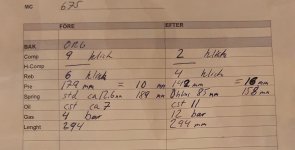 MC 675
FÖRE EFTER
BAK ORG
Comp 9 klick 2 klikk
H.Comp
Reb 6 klick 4 klick
Pre 179 mm = 10 mm 142 mm = 16 mm
Spring std ca 12.6 mm 189 mm Öhlins 85 mm 158 mm
Oil cst ca 7 cst 11
Gas 4 bar 12 bar
Lenght 294 294 mm